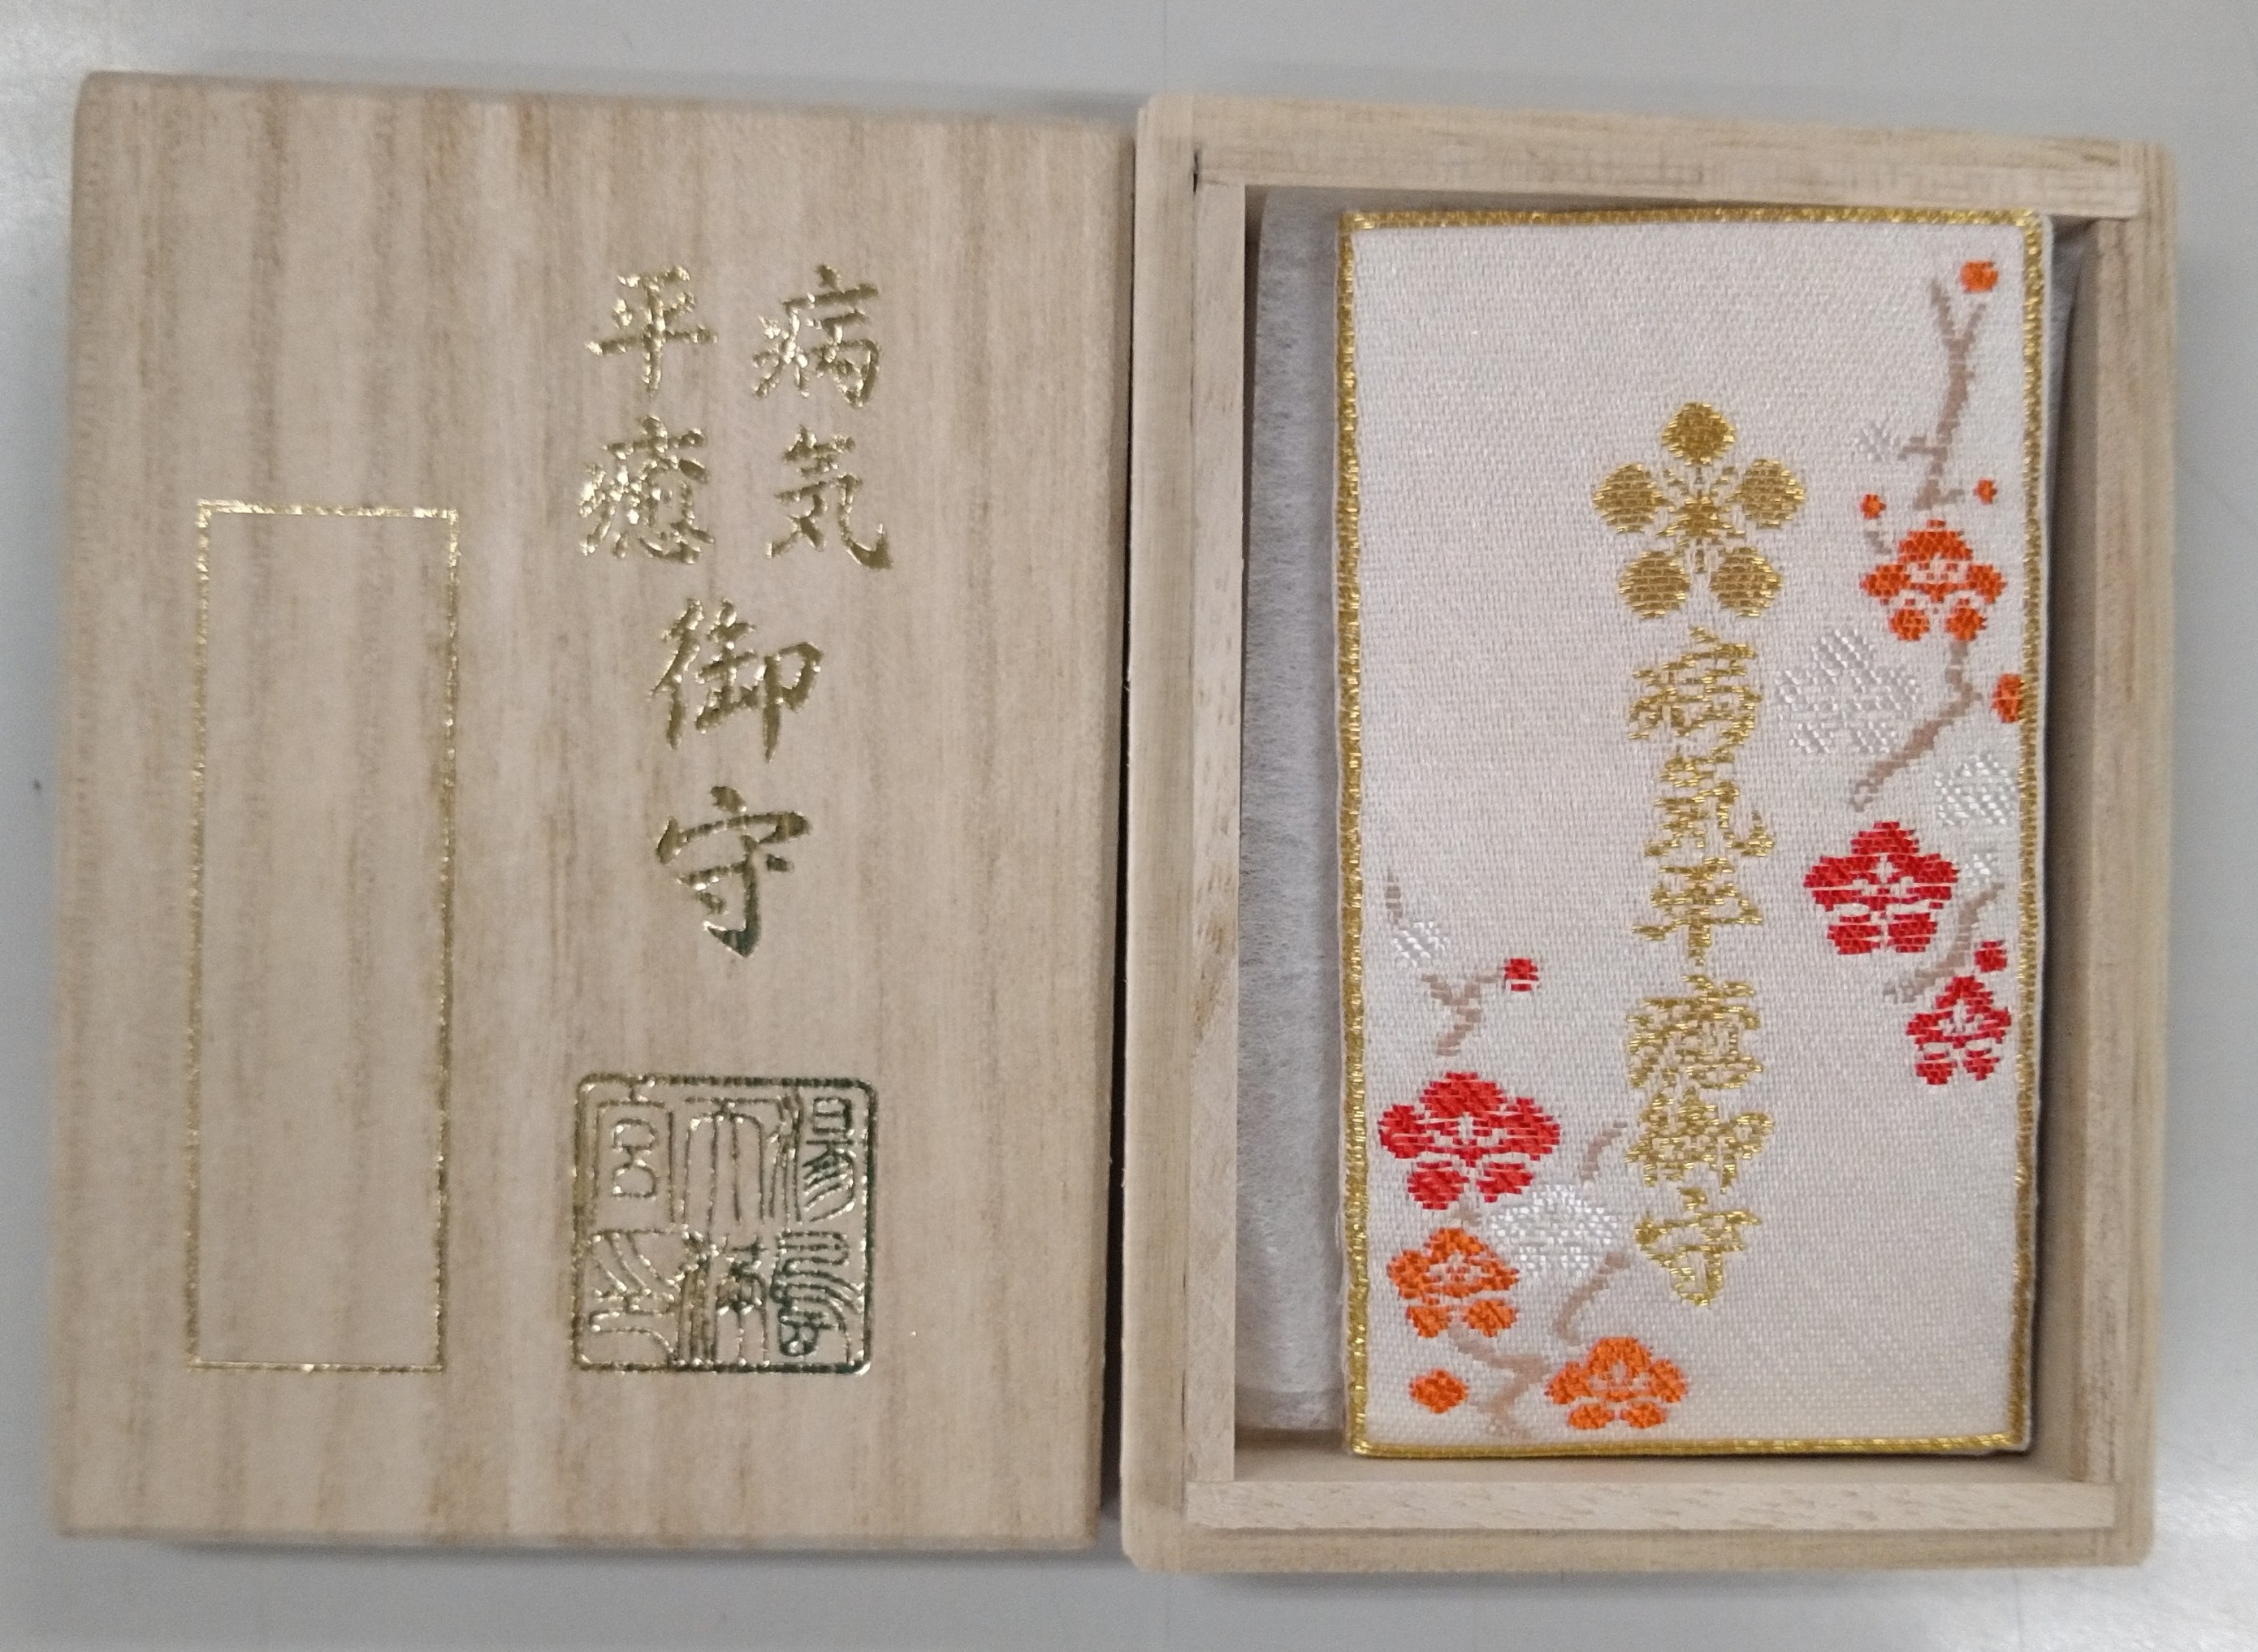 病気
平癒
御守
湯島
天満
宮印
病気平癒御守